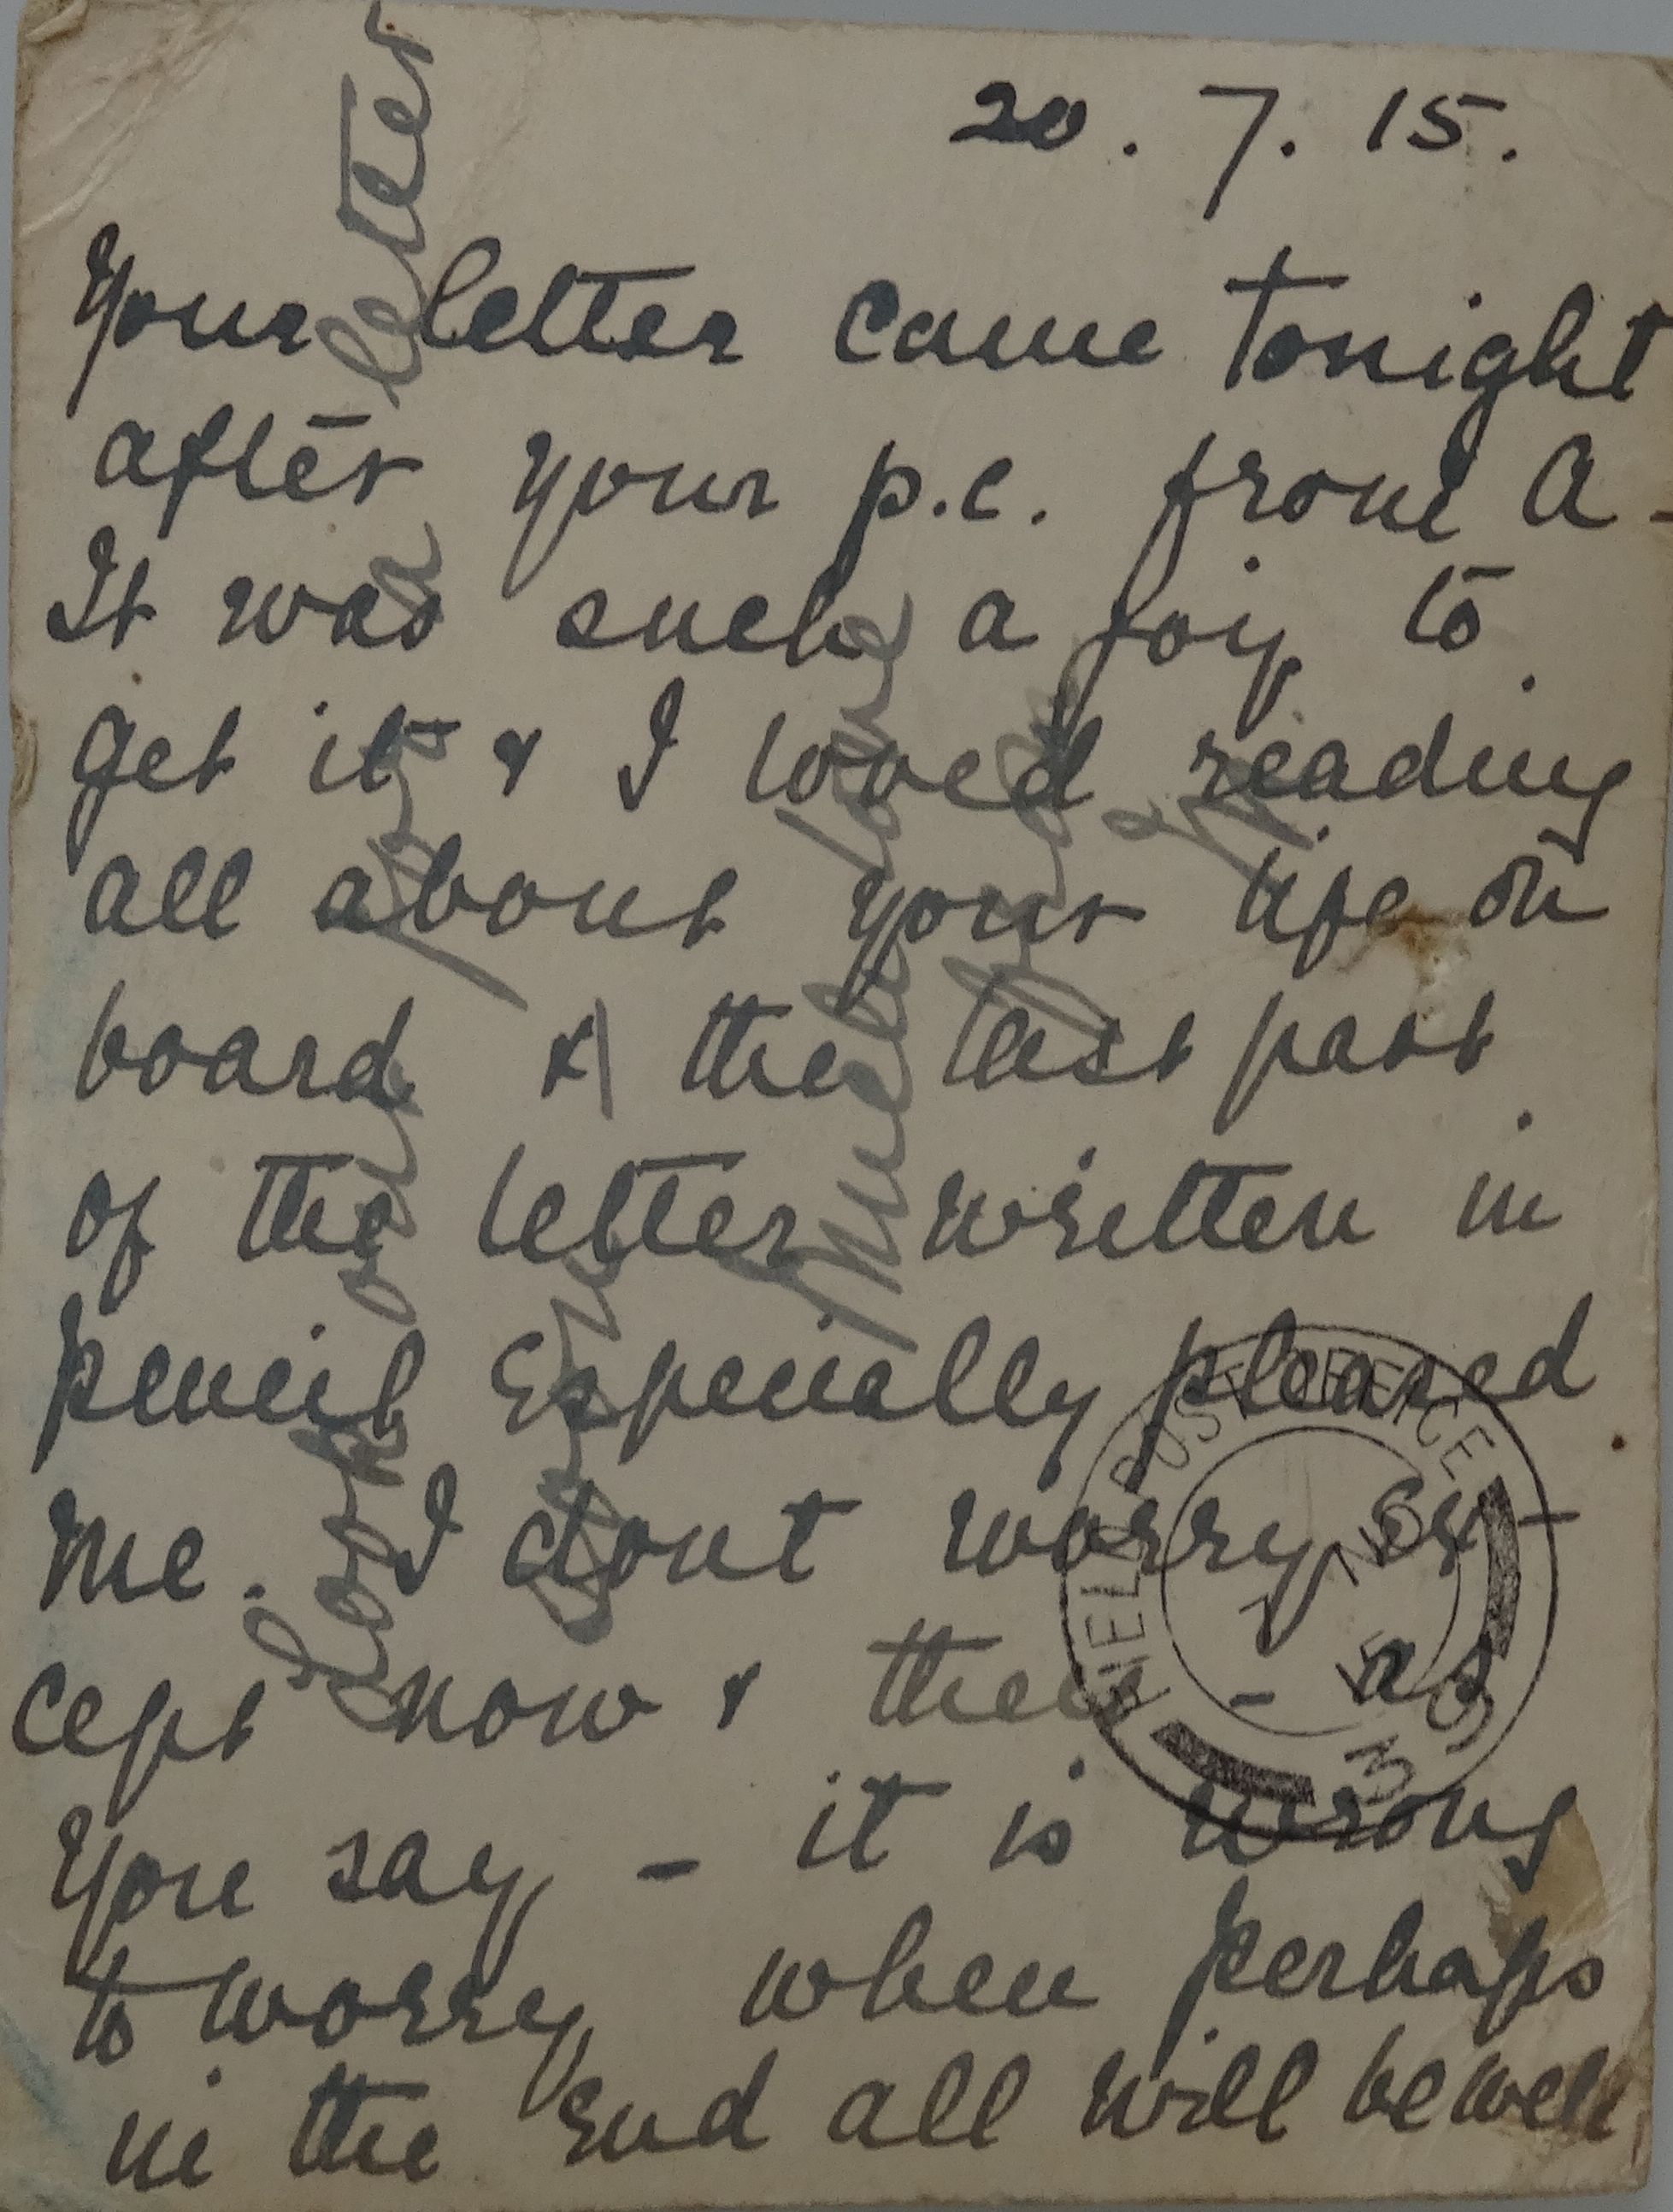 20.7.15.
Your letter came tonight
after your p.c. from A-
It was such a joy to
get it & I loved reading
all about your life on
board & the last part
of the letter written in
pencil especially pleased
me. I dont worry ex-
cept now & then - as
you say - it is wrong
to worry when perhaps
in the end all will be well
Looking out for a letter
Much love
FIELD POST OFFICE